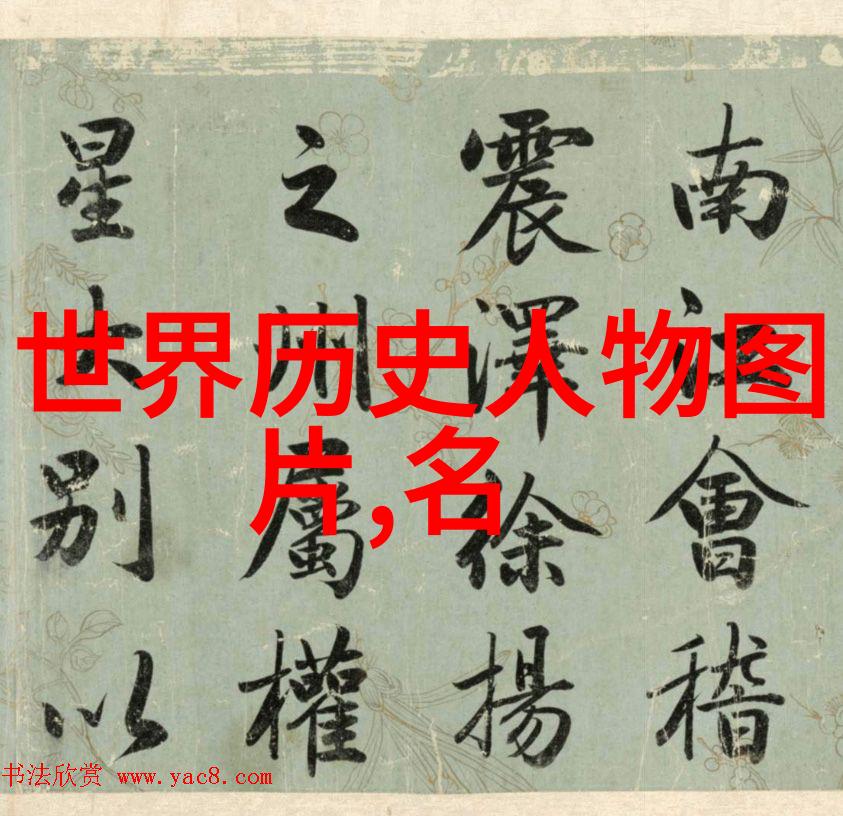 南江會稽
震澤徐揚
之州屬權
星别以
世界历史人物图
片,名
书法欣赏 www.yac8.com